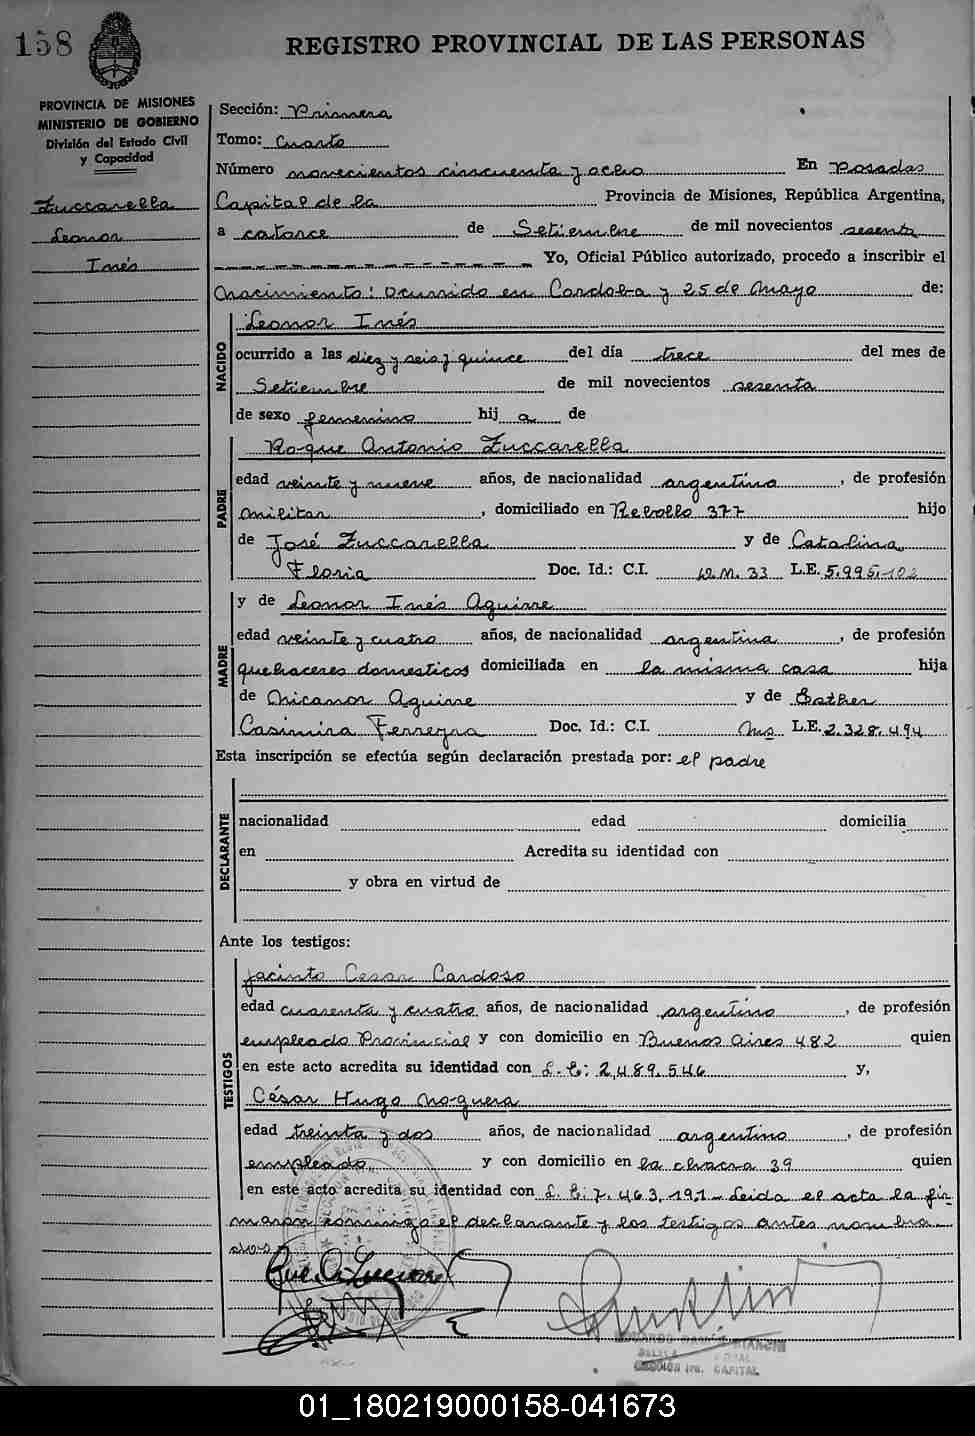 158
REGISTRO PROVINCIAL DE LAS PERSONAS
PROVINCIA DE MISIONES
MINISTERIO DE GOBIERNO
División del Estado Civil
y Capacidad
Zuccarella
Leonor
Inés
Sección: Primera
Tomo: Cuarto
Número novecientos cincuenta y ocho En Posadas
Capital de la Provincia de Misiones, República Argentina,
a catorce de Setiembre de mil novecientos sesenta
Yo, Oficial Público autorizado, procedo a inscribir el
Nacimiento: ocurrido en Cordoba y 25 de Mayo de:
NACIDO
Leonor Inés
ocurrido a las diez y seis y quince del día trece del mes de
Setiembre de mil novecientos sesenta
de sexo femenino hij a de
PADRE
Roque Antonio Zuccarella
edad veinte y nueve años, de nacionalidad argentino, de profesión
Militar, domiciliado en Rebollo 377 hijo
de José Zuccarella y de Catalina
Floria Doc. Id.: C.I. D.M. 33 L.E. 5.995.102
MADRE
y de Leonor Inés Aguirre
edad veinte y cuatro años, de nacionalidad argentina, de profesión
quehaceres domesticos domiciliada en la misma casa hija
de Nicanor Aguirre y de Esther
Casimira Ferreyra Doc. Id.: C.I. L.E. 2.328.494
Esta inscripción se efectúa según declaración prestada por: el padre
DECLARANTE
nacionalidad edad domicilia
en Acredita su identidad con
y obra en virtud de
Ante los testigos:
TESTIGOS
Jacinto Cesar Cardoso
edad cuarenta y cuatro años, de nacionalidad argentino, de profesión
empleado Provincial y con domicilio en Buenos Aires 482 quien
en este acto acredita su identidad con L.E: 2,489.546 y,
César Hugo Noguera
edad treinta y dos años, de nacionalidad argentino, de profesión
empleado y con domicilio en la chacra 39 quien
en este acto acredita su identidad con L.E: 7.463,191- Leida el acta la fir
maron conmigo el declarante y los testigos antes nombra-
dos
SECCIÓN 1ra. CAPITAL
01_180219000158-041673